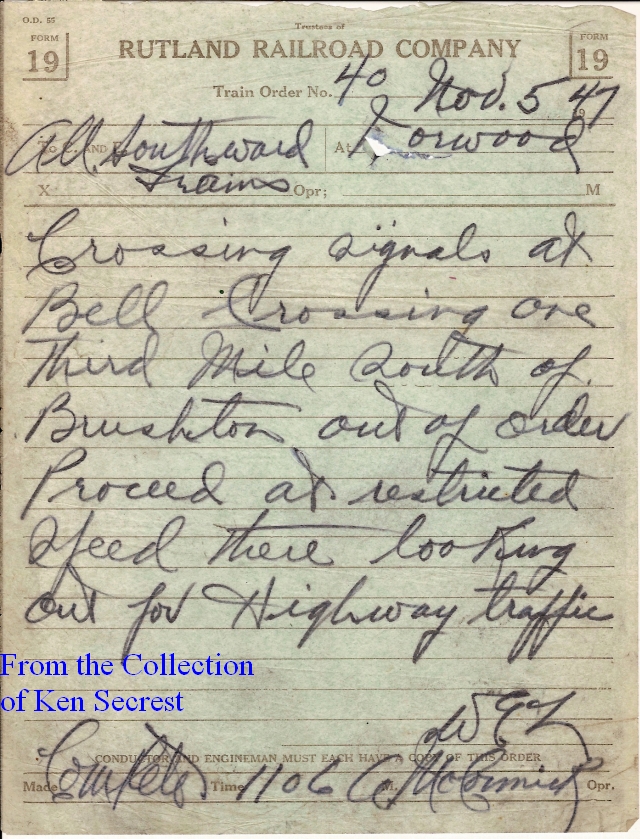 O.D. 55
Trustees of
FORM 19
RUTLAND RAILROAD COMPANY
FORM 19
Train Order No. 40 Nov. 5 1947
To C. AND E. All Southward Trains At Norwood
X Opr; M
Crossing signals at
Bell Crossing one
Third Mile South of
Brushton out of order
Proceed at restricted
speed there looking
out for Highway traffic
From the Collection
of Ken Secrest
CONDUCTOR AND ENGINEMAN MUST EACH HAVE A COPY OF THIS ORDER
Made Complete Time 1106 M. McCormick Opr.